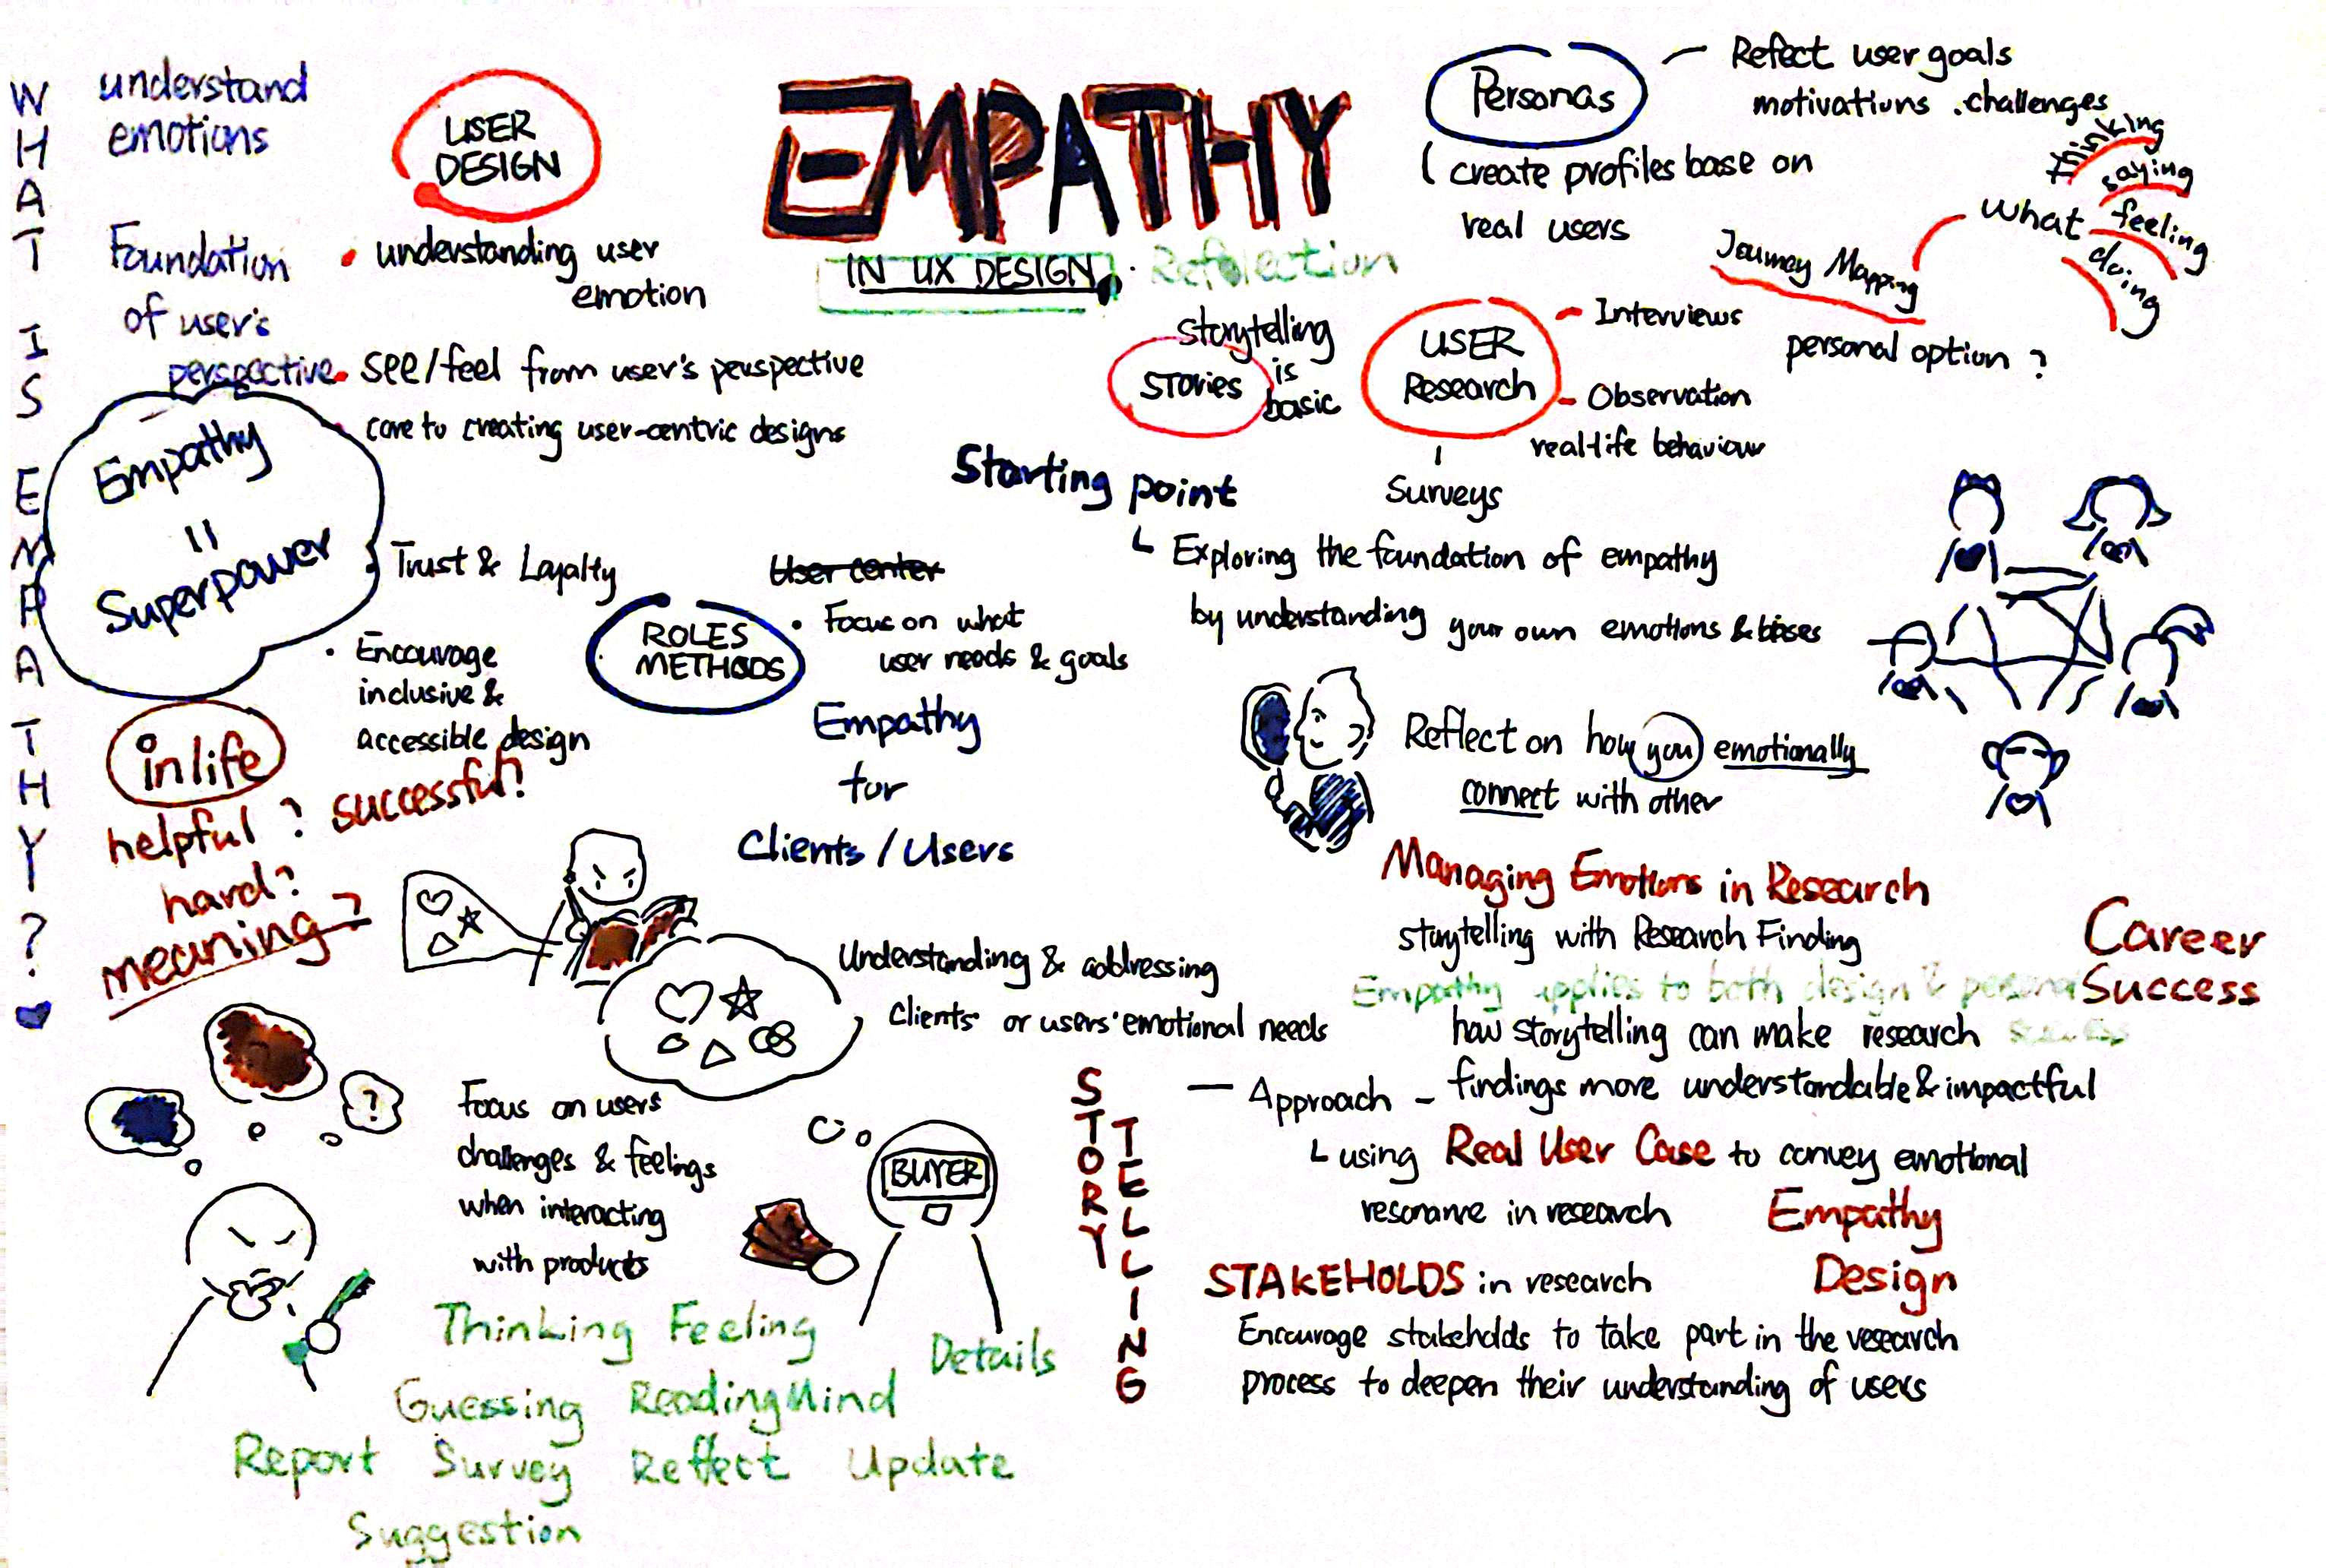 WHAT IS EMPATHY?
understand
emotions
Foundation
of user's
perspective
USER
DESIGN
understanding user
emotion
see/feel from user's perspective
core to creating user-centric designs
EMPATHY
IN UX DESIGN
Reflection
Personas
Refect user goals
motivations . challenges
create profiles base on
real users
Journey Mapping
what
thinking
saying
feeling
doing
personal option ?
storytelling
is
basic
Stories
USER
Research
Interviews
Observation
real-life behaviour
Surveys
Empathy
=
Superpower
Trust & Loyalty
Encourage
inclusive &
accessible design
User center
ROLES
METHODS
Focus on what
user needs & goals
Empathy
for
Clients / Users
Starting point
Exploring the foundation of empathy
by understanding your own emotions & biases
in life
helpful ? successful?
hard?
meaning?
Reflect on how you emotionally
connect with other
Understanding & addressing
clients' or users' emotional needs
Managing Emotions in Research
storytelling with Research Finding
Empathy applies to both design & personal
Career
Success
how storytelling can make research
Approach - findings more understandable & impactful
using Real User Case to convey emotional
resonanve in research
Empathy
Design
STORY
TELLING
STAKEHOLDS in research
Encourage stakeholds to take part in the research
process to deepen their understanding of users
?
Focus on users
challenges & feelings
when interacting
with products
BUYER
Thinking Feeling
Details
Guessing ReadingMind
Report Survey Reflect Update
Suggestion